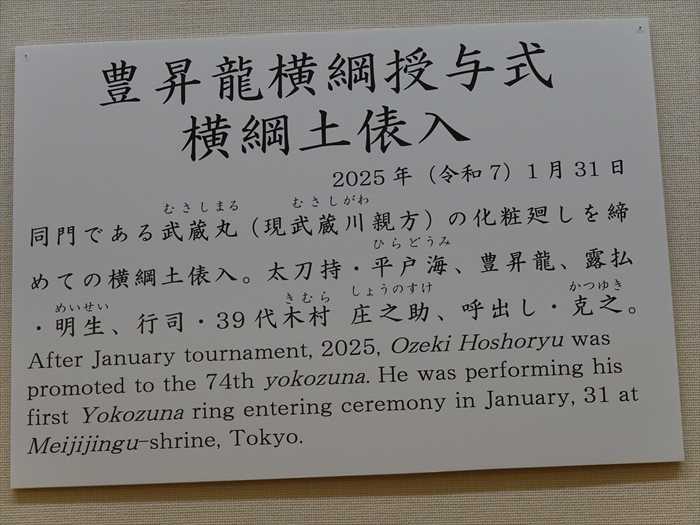 豊昇龍横綱授与式
横綱土俵入
2025年（令和7）1月31日
むさしまる むさしがわ
同門である武蔵丸（現武蔵川親方）の化粧廻しを締
ひらどうみ
めての横綱土俵入。太刀持・平戸海、豊昇龍、露払
めいせい きむら しょうのすけ かつゆき
・明生、行司・39代木村 庄之助、呼出し・克之。
After January tournament, 2025, Ozeki Hoshoryu was
promoted to the 74th yokozuna. He was performing his
first Yokozuna ring entering ceremony in January, 31 at
Meijijingu-shrine, Tokyo.